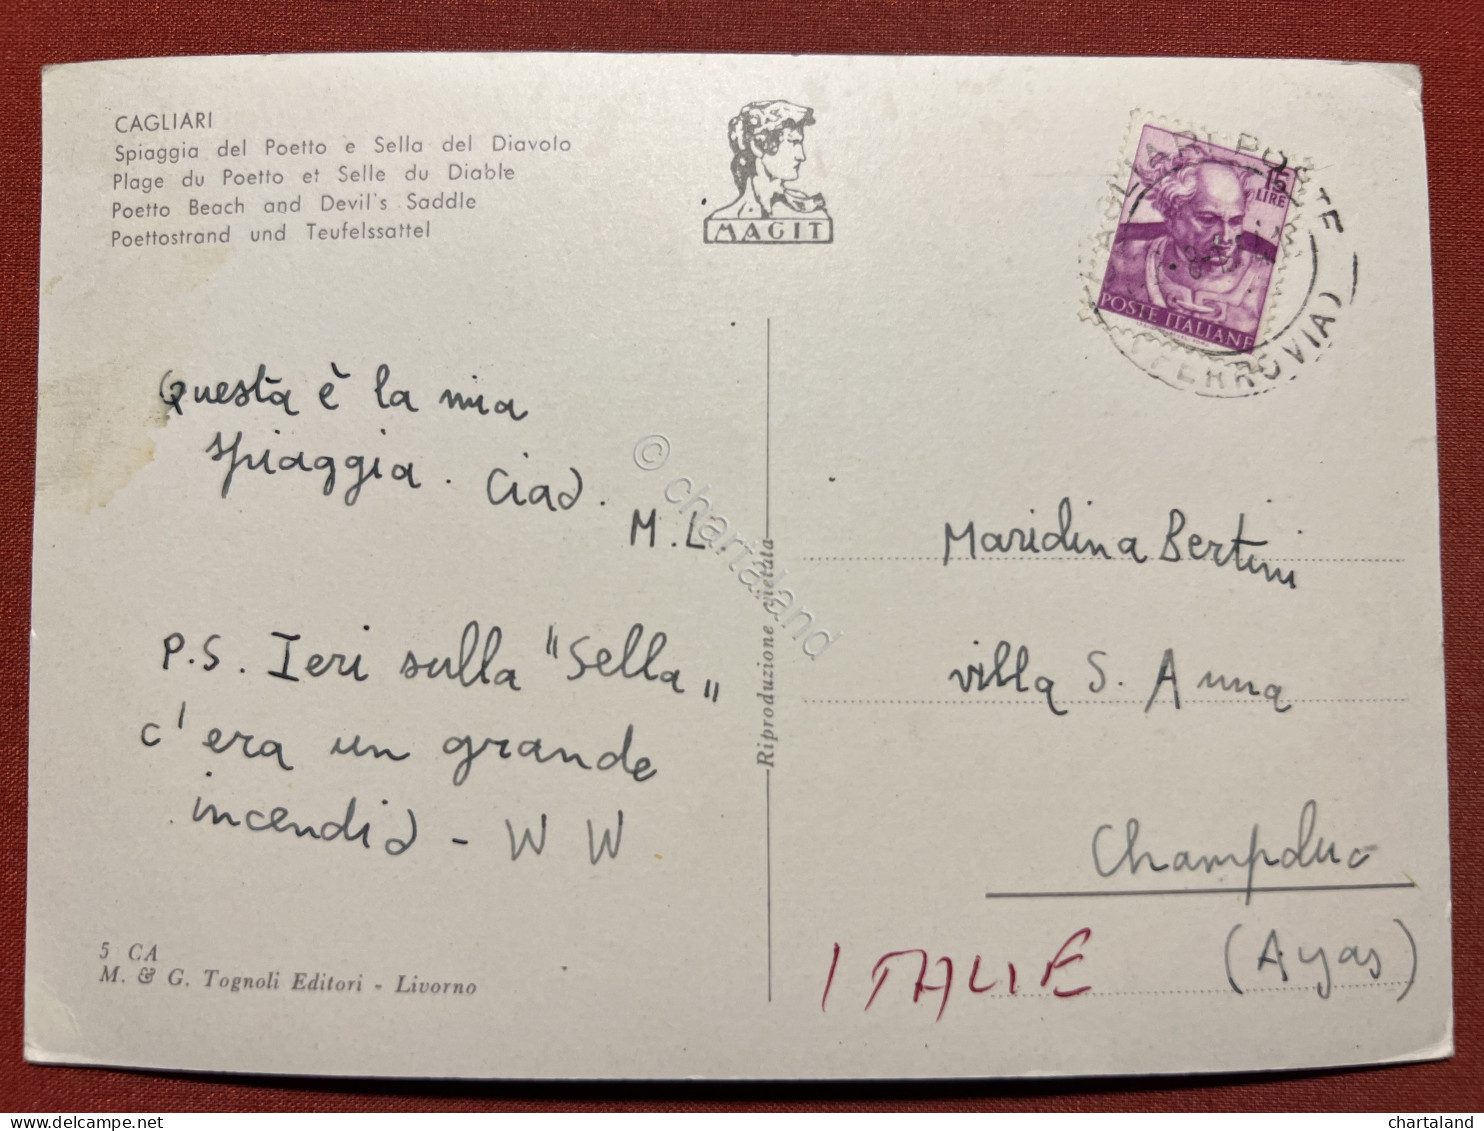 CAGLIARI
Spiaggia del Poetto e Sella del Diavolo
Plage du Poetto et Selle du Diable
Poetto Beach and Devil's Saddle
Poettostrand und Teufelssattel
MAGIT
15
LIRE
POSTE ITALIANE
CAGLIARI POSTE
(FERROVIA)
Questa è la mia
spiaggia. Ciao.
M.L
P.S. Ieri sulla "Sella"
c'era un grande
incendio - W W
5 CA
M. & G. Tognoli Editori - Livorno
Riproduzione vietata
Maridina Bertini
villa S. Anna
Champoluc
(Ayas)
ITALIE
© chartaland
delcampe.net
chartaland